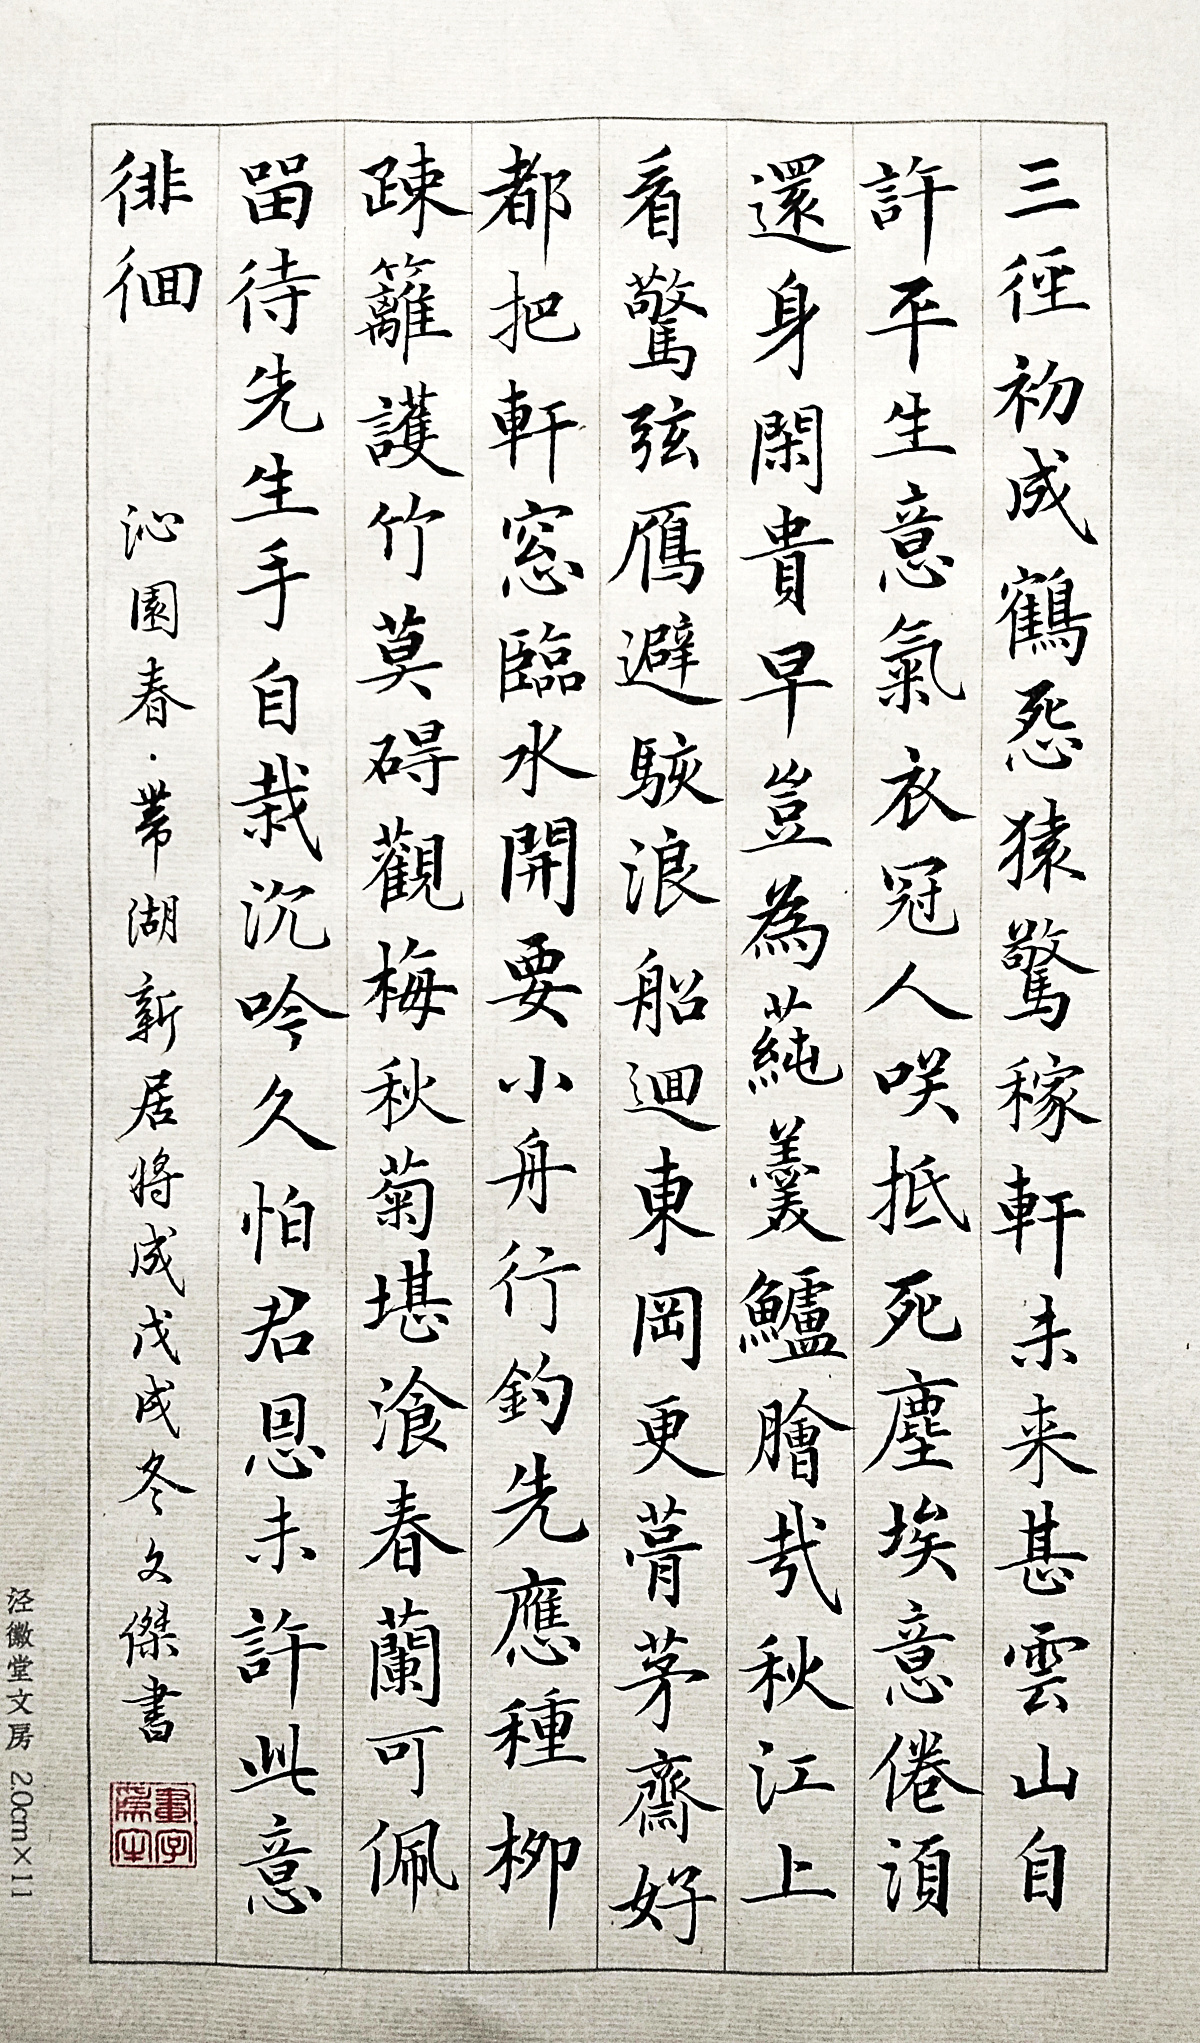 三徑初成鶴怨猿驚稼軒未来甚雲山自
許平生意氣衣冠人咲抵死塵埃意倦須
還身閑貴早豈為蒓羹鱸膾哉秋江上
看驚弦鴈避駭浪船迴東岡更葺茅齋好
都把軒窓臨水開要小舟行釣先應種柳
疎籬護竹莫碍觀梅秋菊堪湌春蘭可佩
畱待先生手自栽沉吟久怕君恩未許此意
徘徊
沁園春·帶湖新居將成戊戌冬文傑書
泾徽堂文房 2.0cm×11